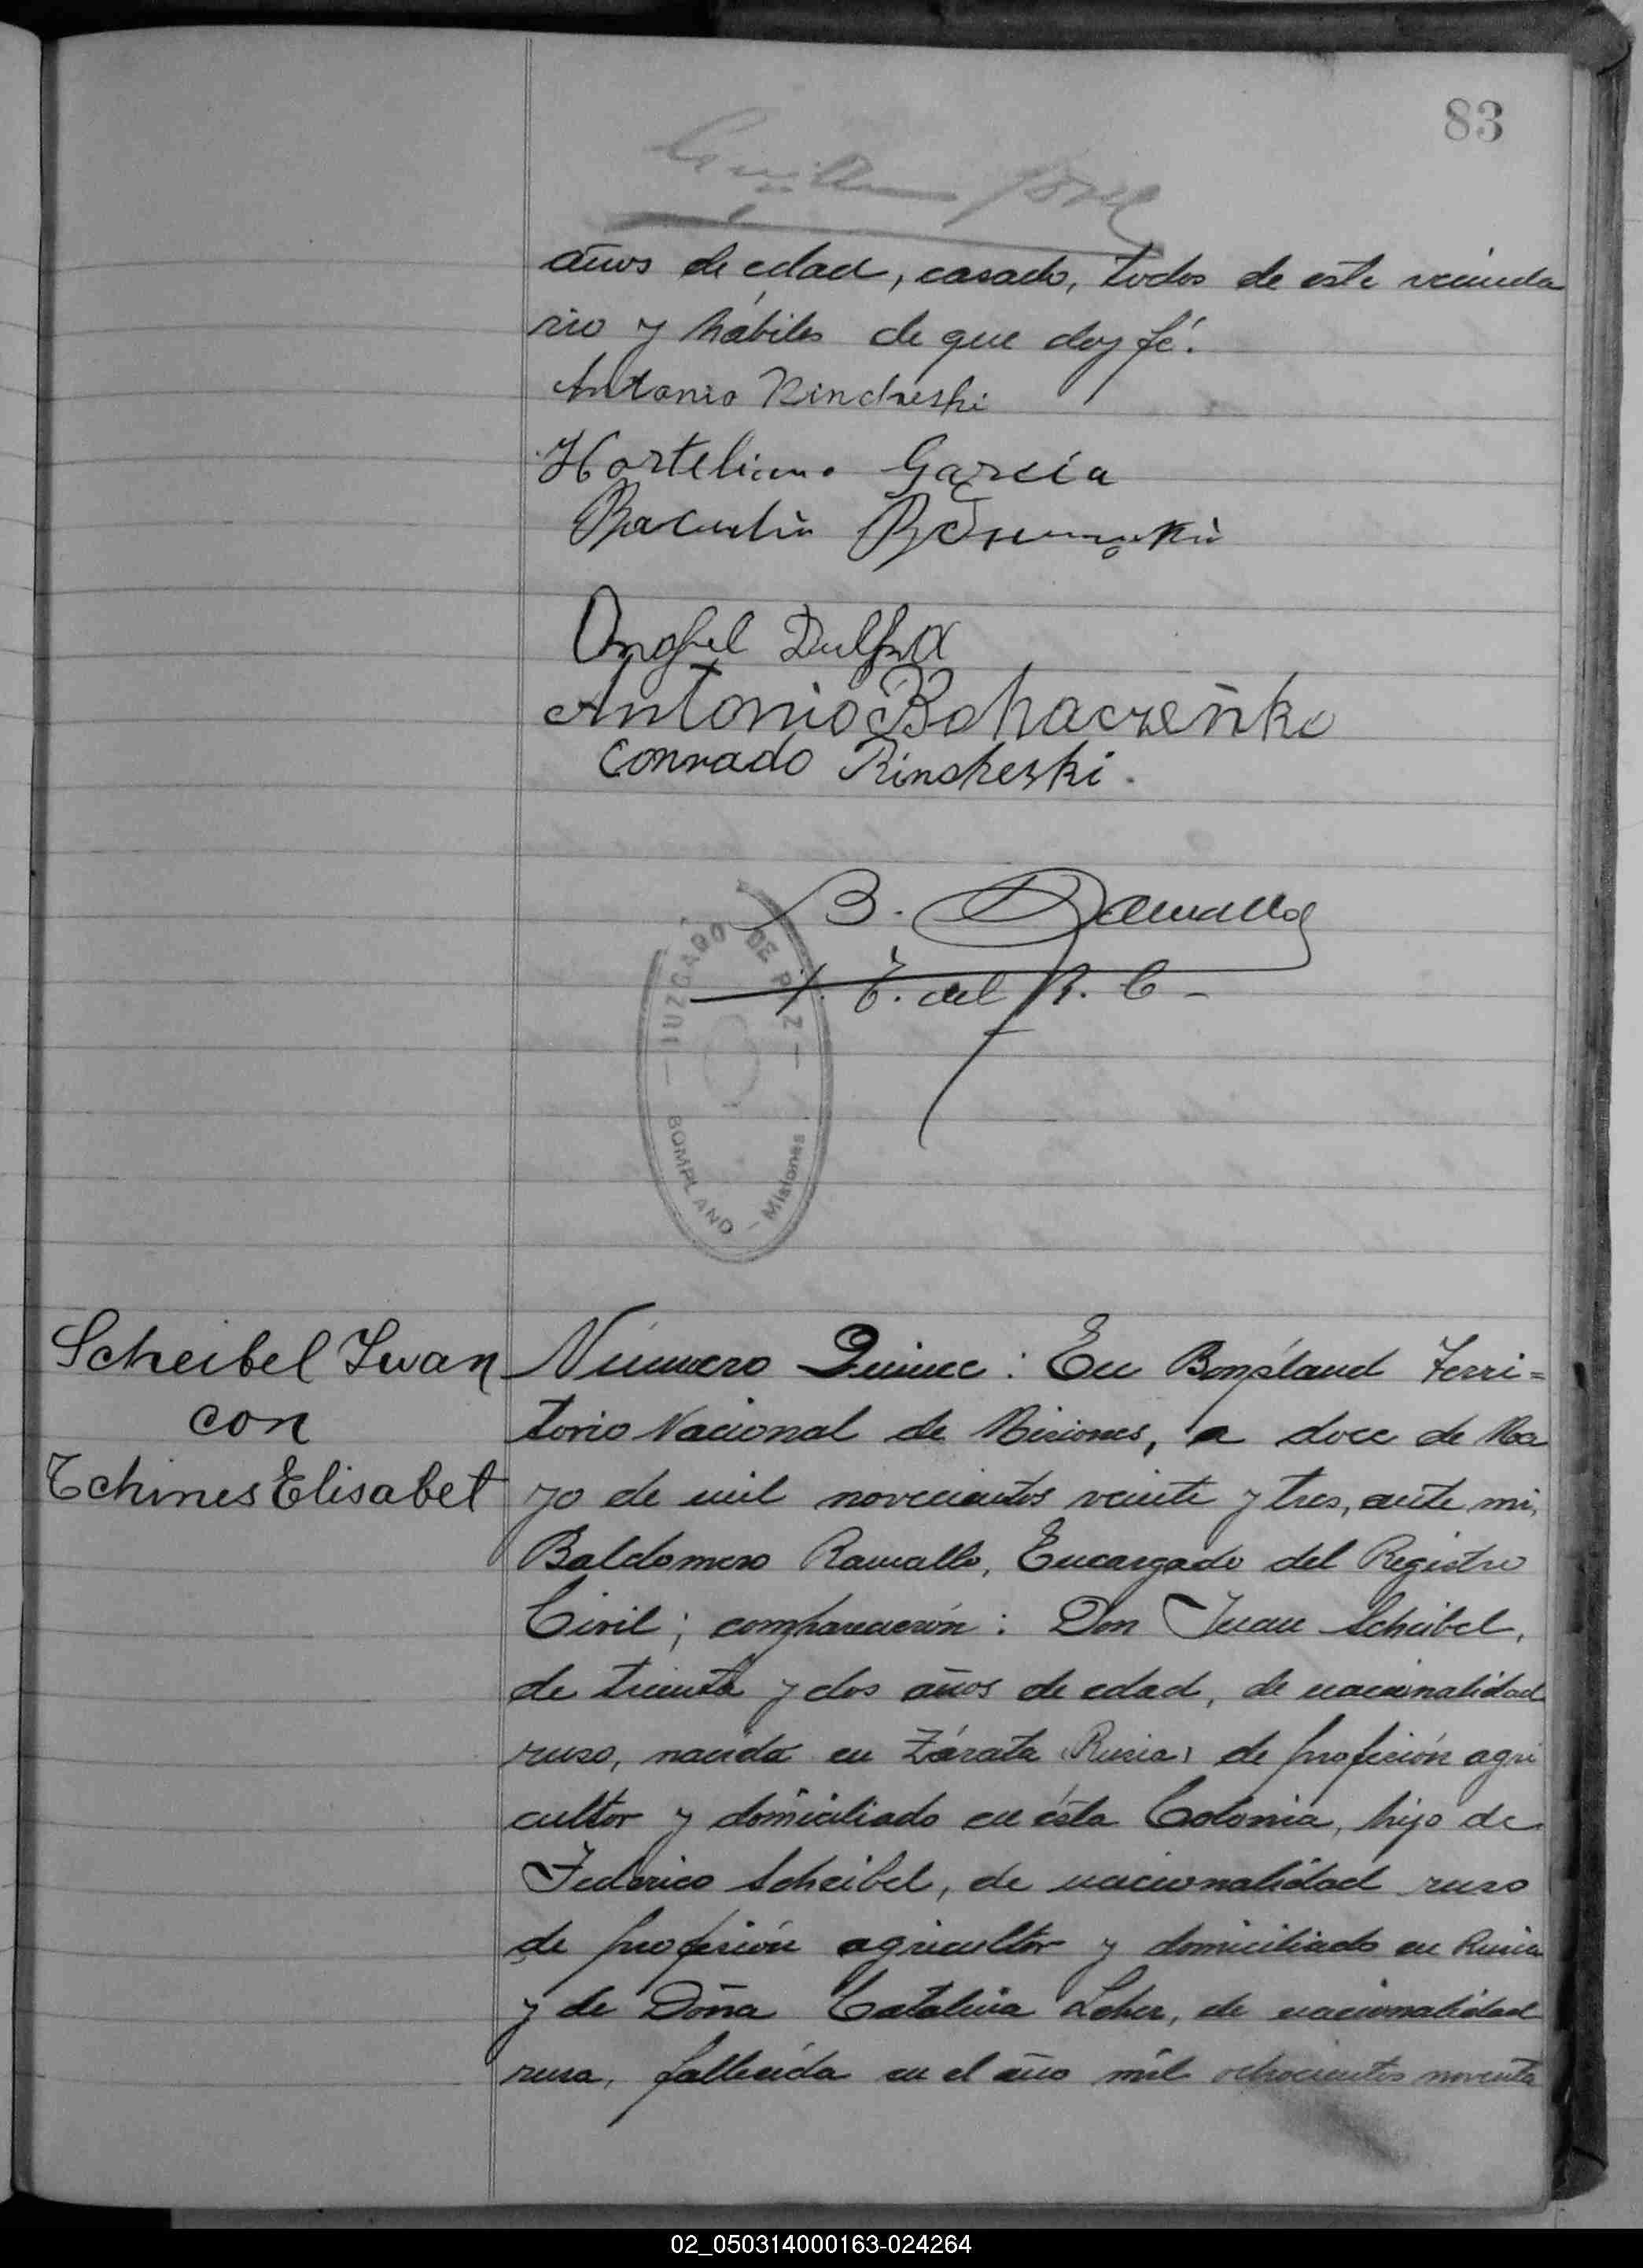 83
años de edad, casado, todos de este vecinda
rio y hábiles de que doy fé.
Antonio
Horteliano García
Antonio Bohaczeñko
Conrado Rinskeski.
B. Ramallo
E. del R. C.
JUZGADO DE PAZ
BOMPLAND - Misiones
Scheibel Iwan
con
Tchines Elisabet
Número Quince: En Bompland Terri=
torio Nacional de Misiones, a doce de Ma
yo de mil novecientos veinte y tres, ante mi,
Baldomero Ramallo, Encargado del Registro
Civil; comparecierón: Don Juan Scheibel,
de treinta y dos años de edad, de nacionalidad
ruso, nacido en Zárata (Rusia) de profesión agri
cultor y domiciliado en ésta Colonia, hijo de
Federico Scheibel, de nacionalidad ruso
de profesión agricultor y domiciliado en Rusia
y de Doña Catalina Leher, de nacionalidad
rusa, fallecida en el año mil ochocientos noventa
02_050314000163-024264